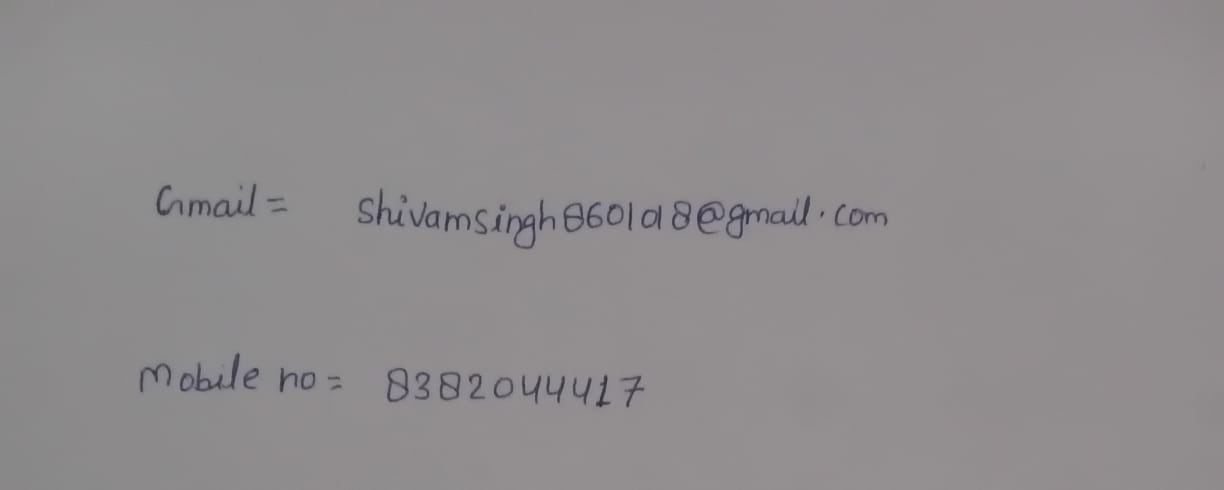 Gmail = shivamsingh8601018@gmail.com
Mobile no = 8382044417